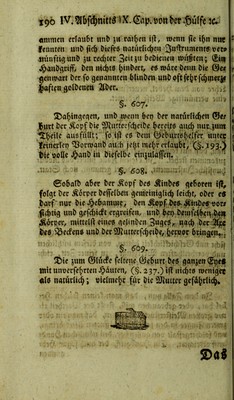 190 IV. Abschnitts IX. Cap. von der Hülfe ꝛc.
ammen erlaubt und zu rathen ist, wenn sie ihn nur
kennten und sich dieses natürlichen Instruments ver-
nünftig und zu rechter Zeit zu bedienen wüßten; Ein
Handgriff, den nichts hindert, es wäre denn die Ge-
genwart der so genannten blinden und oft sehr schmerz-
haften goldenen Ader.
§. 607.
Dahingegen, und wenn bey der natürlichen Ge-
burt der Kopf die Mutterscheide bereits auch nur zum
Theile ausfüllt; so ist es dem Geburtshelfer unter
keinerley Vorwand auch jetzt mehr erlaubt, (§. 193.)
die volle Hand in dieselbe einzulassen.
§. 608.
Sobald aber der Kopf des Kindes geboren ist,
folget der Körper desselben gemeiniglich leicht, oder es
darf nur die Hebamme, den Kopf des Kindes vor-
sichtig und geschickt ergreifen, und den denselben den
Körper, mittelst eines gelinden Zuges, nach der Axe
des Beckens und der Mutterscheide, hervor bringen.
§. 609.
Die zum Glücke seltene Geburt des ganzen Eyes
mit unversehrten Häuten, (§. 237.) ist nichts weniger
als natürlich; vielmehr für die Mutter gefährlich.
Das